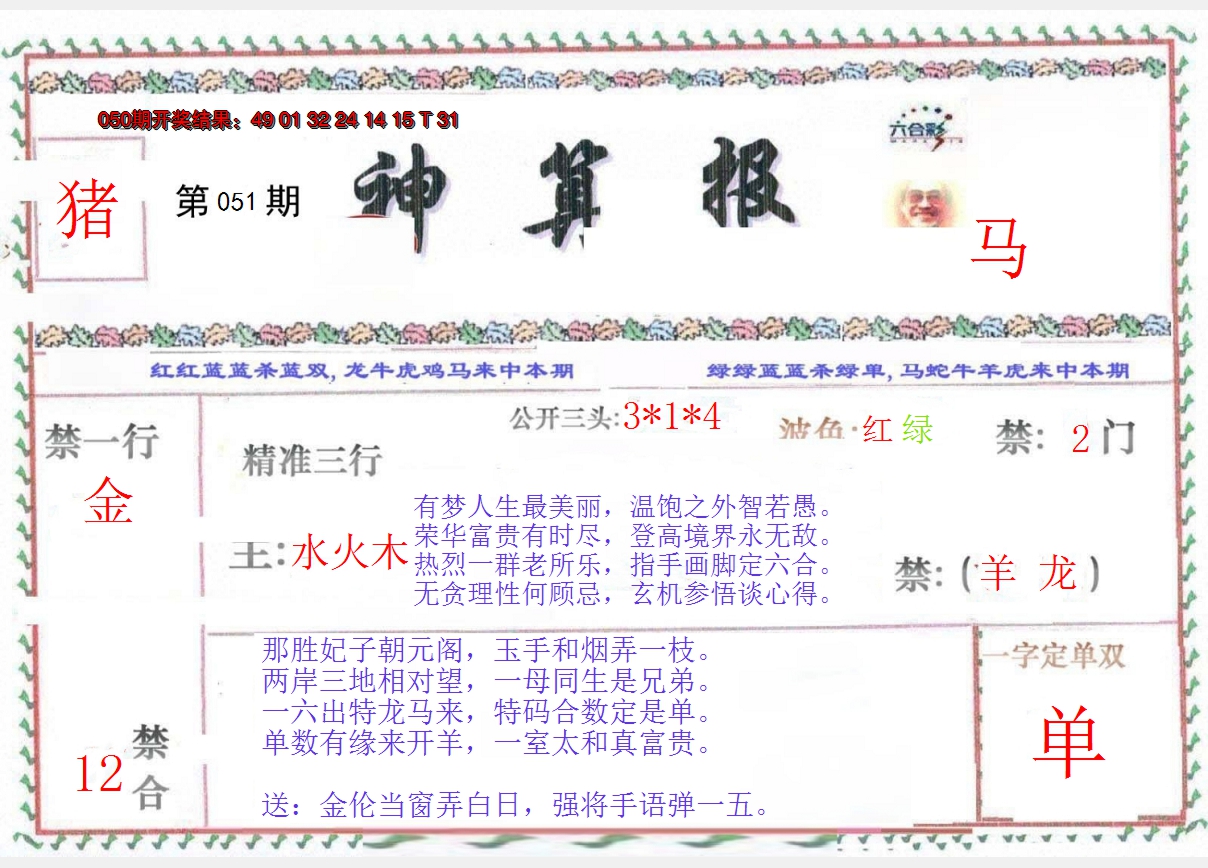 050期开奖结果：49 01 32 24 14 15 T 31
六合彩
猪
第051期
神算报
马
红红蓝蓝杀蓝双,龙牛虎鸡马来中本期
绿绿蓝蓝杀绿单,马蛇牛羊虎来中本期
公开三头:3*1*4
波色:红 绿
禁: 2门
禁一行
金
精准三行
主:水火木
有梦人生最美丽，温饱之外智若愚。
荣华富贵有时尽，登高境界永无敌。
热烈一群老所乐，指手画脚定六合。
无贪理性何顾忌，玄机参悟谈心得。
禁:(羊 龙)
那胜妃子朝元阁，玉手和烟弄一枝。
两岸三地相对望，一母同生是兄弟。
一六出特龙马来，特码合数定是单。
单数有缘来开羊，一室太和真富贵。
送：金伦当窗弄白日，强将手语弹一五。
12
禁合
一字定单双
单